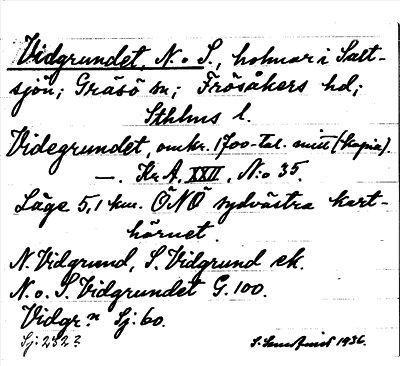 Vidgrundet, N. o S., holmar i Salt-
sjön; Gräsö sn; Frösåkers hd;
Sthlms l.
Videgrundet, omkr. 1700-tal. mitt (kopia).
—. Kr. A. XXII, N:o 35.
Läge 5,1 km. ÖNÖ sydvästra kart-
hörnet.
N. Vidgrund, S. Vidgrund ek.
N. o. S. Vidgrundet G. 100.
Vidgr.n Sj: 60.
Sj: 232?
1936.